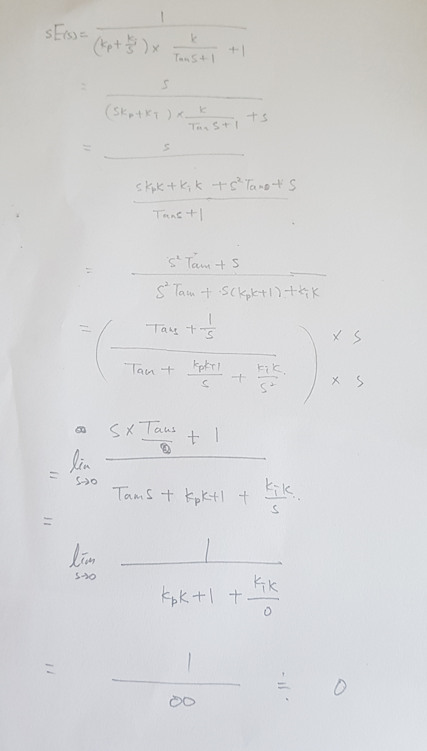 sE(s) = 1 / ((kp + ki/s) × k/(Tans+1) + 1)
= s / ((skp + ki) × k/(Tans+1) + s)
= s / ((skpk + kik + s²Tans + s) / (Tans+1))
= (s²Tam + s) / (s²Tam + s(kpk+1) + kik)
= ((Tans + 1/s) / (Tam + (kpk+1)/s + kik/s²)) × s × s
= lim s→0 (s × Tans + 1) / (Tams + kpk+1 + kik/s)
= lim s→0 1 / (kpk+1 + kik/0)
= 1/∞ ≒ 0